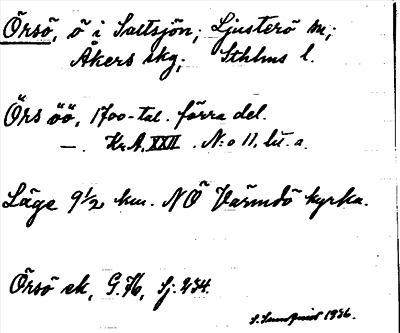 Örsö, ö i Saltsjön; Ljusterö sn;
Åkers skg; Sthlms l.
Örs öö, 1700-tal. förra del.
—. Kr.A. XXII. N:o 11, lit. a.
Läge 9 1/2 km. NÖ Värmdö kyrka.
Örsö ek, G.K, Sj. 234.
S. Lundquist 1936.